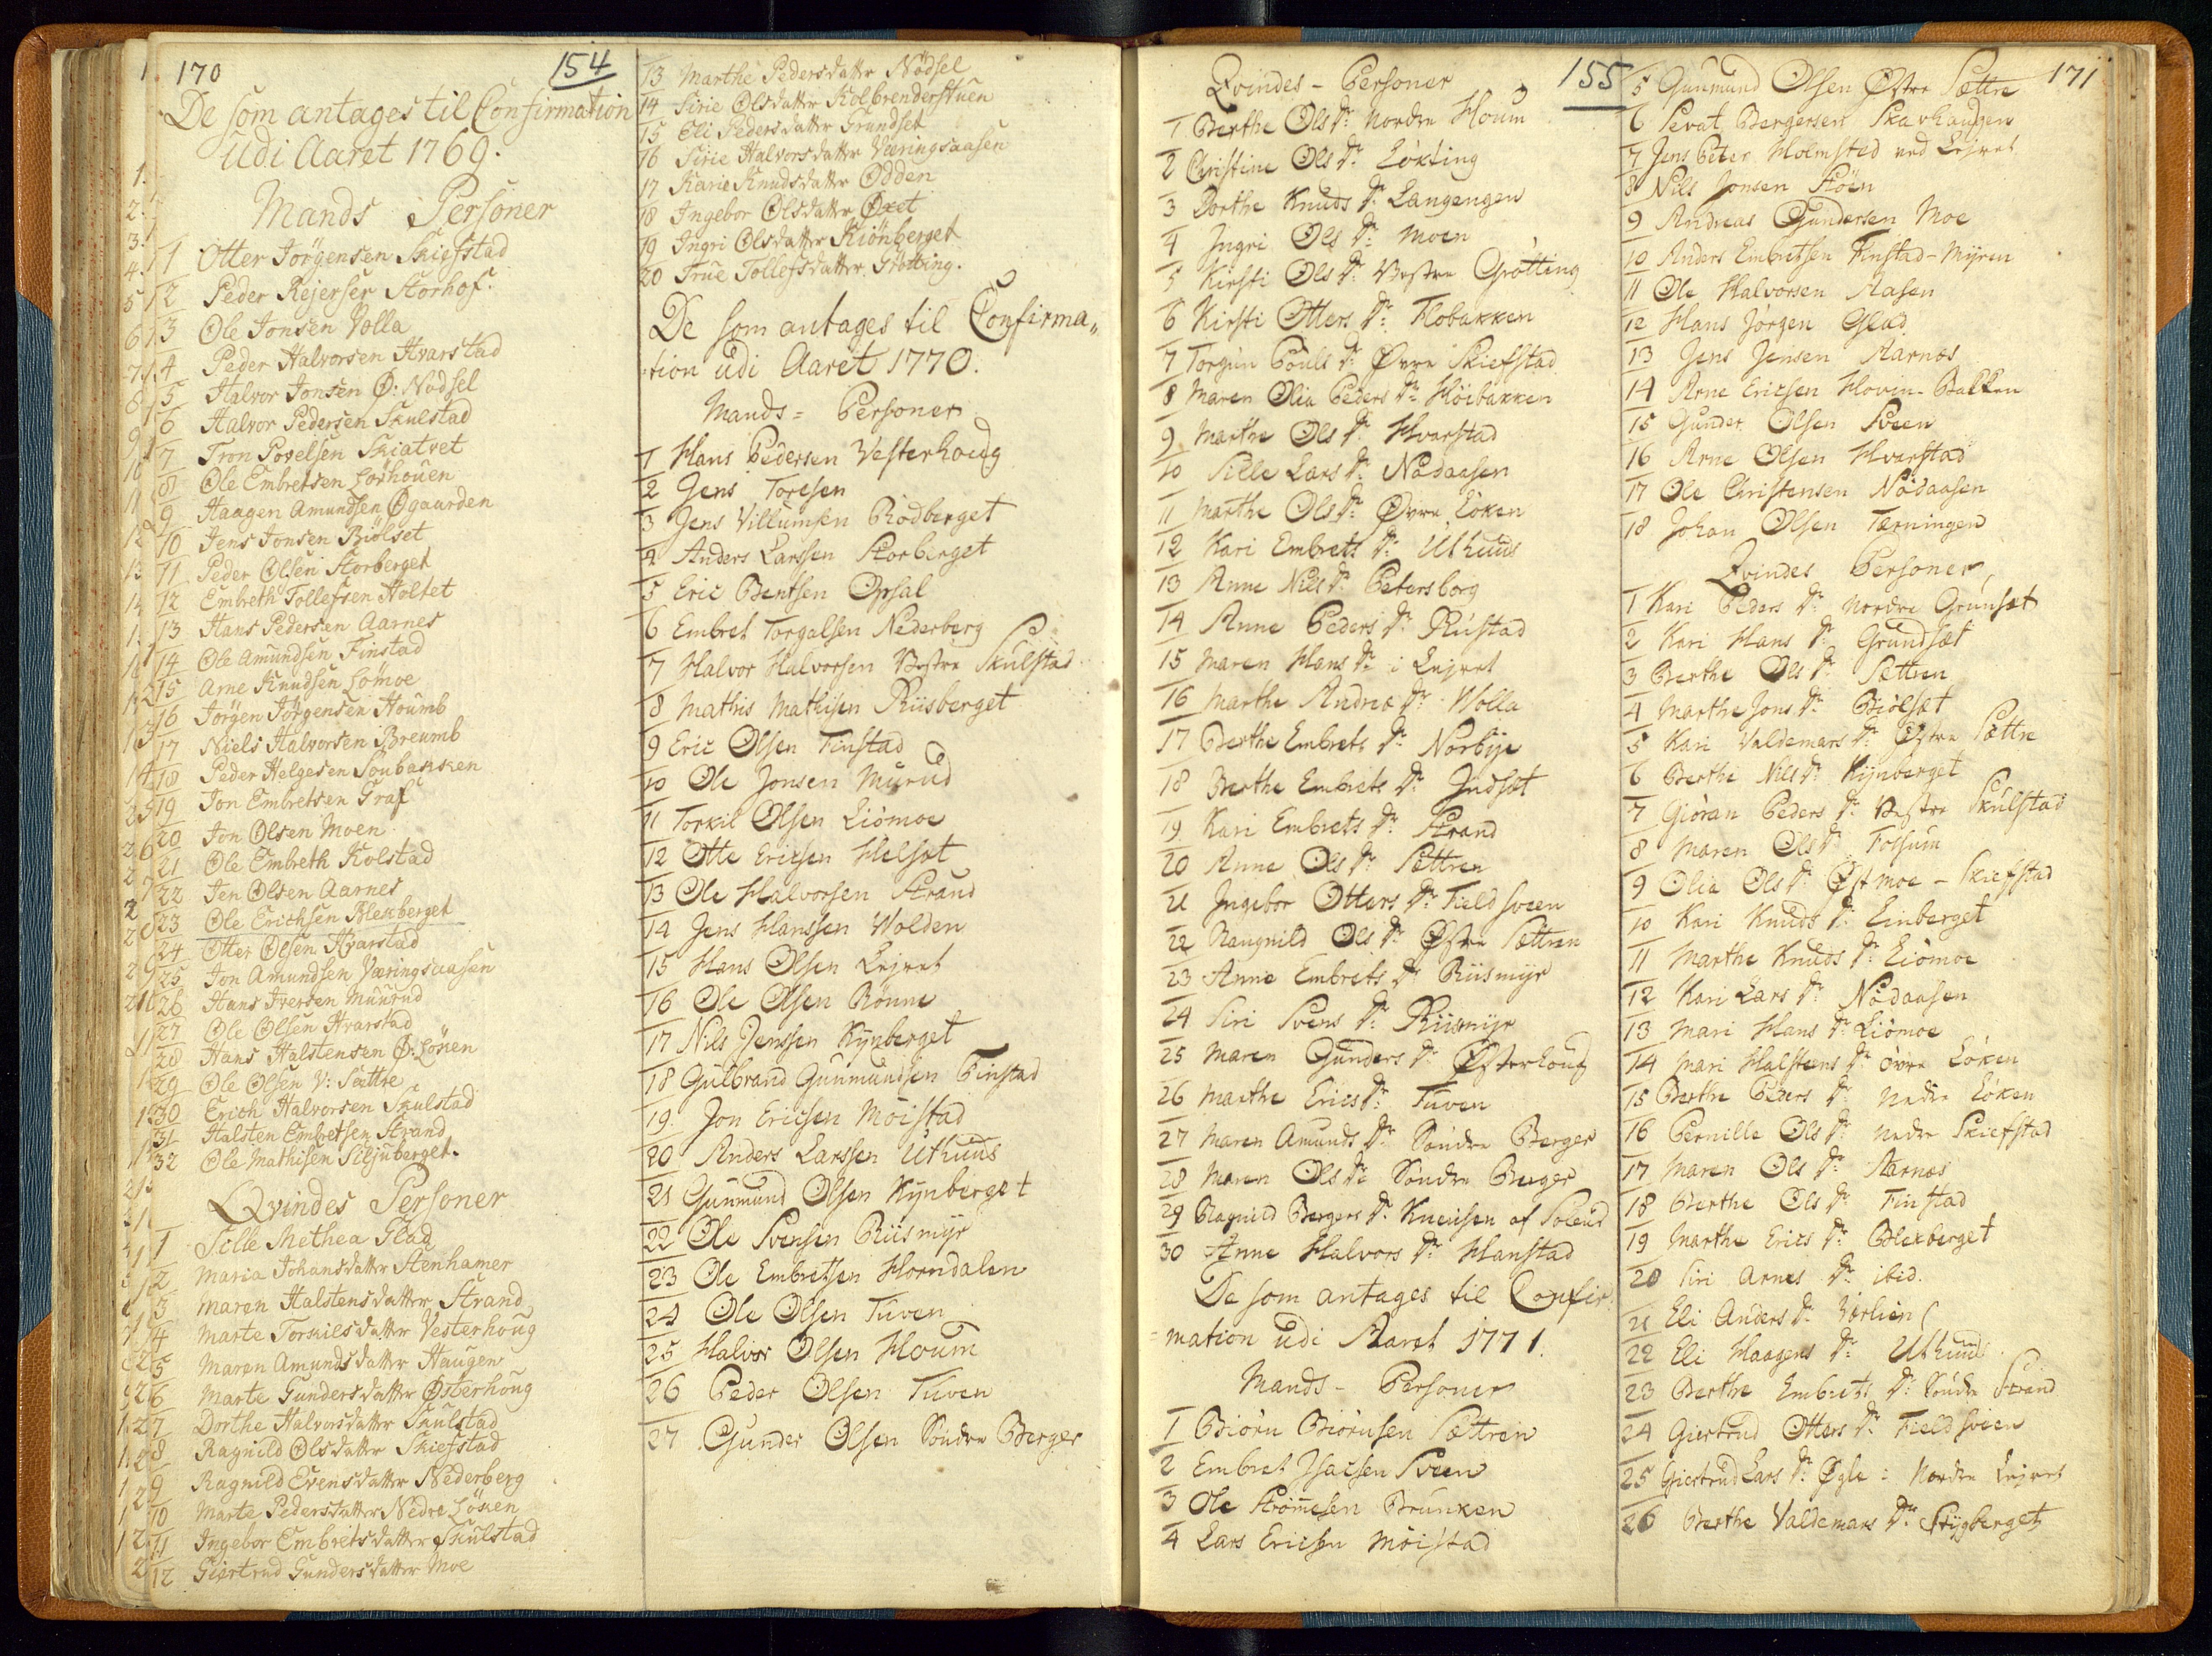 170
154
De som antages til Confirmation
udi Aaret 1769.
Mands Personer
1 Otter Jörgensen Skiefstad
2 Peder Rejerser Storhof.
3 Ole Jonsen Volla
4 Peder Halvorsen Hvarstad
5 Halvor Jonsen Ø: Nödsel
6 Halvor Pedersen Skulstad
7 Tron Povelsen Skiatvet
8 Ole Embretsen
9 Haagen Amundsen Øgaarden
10 Jens Jonsen Biölset
11 Peder Olsen Storberget
12 Embreth Tollefsen Holtet
13 Hans Pedersen Aarnes
14 Ole Amundsen Finstad
15 Arne Knudsen Lömoe
16 Jörgen Jörgensen Houmb
17 Niels Halvorsen Breumb
18 Peder Helgesen
19 Jon Embretsen Graf
20 Jon Olsen Moen
21 Ole Embreth Kolstad
22 Jen Olsen Aarnes
23 Ole Erichsen Blekberget
24 Otter Olsen Hvarstad
25 Jon Amundsen Væringsaasen
26 Hans Iversen Muurud
27 Ole Olsen Hvarstad
28 Hans Halstensen Ø: Löken
29 Ole Olsen V: Sættre
30 Erich Halvorsen Skulstad
31 Halsten Embretsen Strand
32 Ole Mathisen Siljuberget.
Qvindes Personer
1 Sille Methea Glad
2 Maria Johansdatter Stenhamer
3 Maren Halstensdatter Strand
4 Marte Torkilsdatter Vesterhoug
5 Maren Amundsdatter Haugen
6 Marte Gundersdatter Østerhoug
7 Dorthe Halvorsdatter Skulstad
8 Ragnild Olsdatter Skiefstad
9 Ragnild Evensdatter Nederberg
10 Marte Pedersdatter Nedre Löken
11 Ingebor Embretsdatter Skulstad
12 Giertrud Gundersdatter Moe
13 Marthe Pedersdatter Nödsel
14 Sirie Olsdatter Kolbrenderstuen
15 Oli Pedersdatter Grundset
16 Sirie Halvorsdatter Væringsaasen
17 Karie Knudsdatter Odden
18 Ingebor Olsdatter Øxet
19 Ingri Olsdatter Kiönberget
20 True Tollefsdatter Grötting.
De som antages til Confirma„
tion udi Aaret 1770.
Mands = Personer
1 Hans Pedersen Vesterhoug
2 Jens Toresen
3 Jens Villumsen Rödberget
4 Anders Larssen Storberget
5 Eric Bentsen Opsal
6 Embret Torgalsen Nederberg
7 Halvor Halvorsen Vestre Skulstad
8 Mathis Mathisen Riisberget
9 Eric Olsen Finstad
10 Ole Jonsen Murud
11 Torkil Olsen Liömoe
12 Otte Ericsen Helset
13 Ole Halvorsen Strand
14 Jens Hanssen Wolden
15 Hans Olsen Lejret
16 Ole Olsen Rönne
17 Nils Jenssen Kynberget
18 Gulbrand Gunmundsen Finstad
19. Jon Ericsen Möistad
20 Anders Larssen Uthuus
21 Gunmund Olsen Kynberget
22 Ole Svensen Riismyr
23 Ole Embretsen Horndalen
24 Ole Olsen Tuven
25 Halvor Olsen Houm
26 Peder Olsen Tuven
27 Gunder Olsen Söndre Berger
155
Qvindes - Personer
1 Berthe Ols Dr: Nordre Houm
2 Christine Ols Dr: Löxting
3 Dorthe Knuds Dr: Langengen
4 Ingri Ols Dr: Moen
5 Kirsti Ols Dr: Vestre Grötting
6 Kirsti Otters Dr: Flobakken
7 Torgun Pouls Dr: Øvre Skiefstad
8 Maren Olia Peders Dr: Höibakken
9 Marthe Ols Dr: Hvarstad
10 Sille Lars Dr: Nödaasen
11 Marthe Ols Dr: Øvre Löken
12 Kari Embrets Dr: Uthuus
13 Anne Nils Dr: Petersborg
14 Anne Peders Dr: Rustad
15 Maren Hans Dr: i Lejret
16 Marthe Andreæ Dr: Wolla
17 Berthe Embrets Dr: Norbye
18 Berthe Embrets Dr: Indset
19 Kari Embrets Dr: Strand
20 Anne Ols Dr: Sættren
21 Ingebor Otters Dr: Fieldsveen
22 Raugnild Ols Dr: Østre Sættren
23 Anne Embrets Dr: Riismyr
24 Siri Svens Dr: Riismyr
25 Maren Gunders Dr: Østerhoug
26 Marthe Erics Dr: Tuven
27 Maren Amunds Dr: Söndre Berger
28 Maren Ols Dr: Söndre Berger
29 Ragnild Bergers Dr: Knensen af Soleud
30 Anne Halvors Dr: Hanstad
De som antages til Confir-
=mation udi Aaret 1771.
Mands - Personer
1 Biörn Biörnsen Sættren
2 Embret Isacsen Sveen
3 Ole Strömesen Brunken
4 Lars Ericsen Möistad
171
5 Gunmund Olsen Østre Sættre
6 Sevat Bergersen Skavhaugen
7 Jens Peter Holmsted ved Lejret
8 Nils Jonsen Stöen
9 Andreas Gundersen Moe
10 Anders Embretsen Finstad-Myren
11 Ole Halvorsen Aasen
12 Hans Jörgen Glad
13 Jens Jensen Aarnæs
14 Arne Ericsen Hovin-Bakken
15 Gunder Olsen Sveen
16 Arne Olsen Hvarstad
17 Ole Christensen Nödaasen
18 Johan Olsen Tærningen
Qvindes Personer
1 Kari Peders Dr: Nordre Grunset
2 Kari Hans Dr: Grundset
3 Berthe Ols Dr: Sættren
4 Marthe Jons Dr: Biölset
5 Kari Valdemars Dr: Østre Sættre
6 Berthe Nils Dr: Kynberget
7 Giöran Peders Dr: Vestre Skulstad
8 Maren Ols Dr: Fossum
9 Olia Ols Dr: Østmoe - Skiefstad
10 Kari Knuds Dr: Einberget
11 Marthe Knuds Dr: Liömoe
12 Kari Lars Dr: Nödaasen
13 Mari Hans Dr: Liömoe
14 Mari Halstens Dr: övre Löken
15 Berthe Peders Dr: Nedre Löken
16 Pernille Ols Dr: Nedre Skiefstad
17 Maren Ols Dr: Aarnæs
18 Berthe Ols Dr: Finstad
19 Marthe Erics Dr: Blekberget
20 Siri Arnes Dr: ibid.
21 Eli Anders Dr: Vorlien
22 Eli Haagens Dr: Uthuus
23 Berthe Embrets Dr: Söndre Strand
24 Giertrud Otters Dr: Fieldsveen
25 Giertrud Lars Dr: Øgle i Nordre Lejret
26 Berthe Valdemars Dr: Stygberget